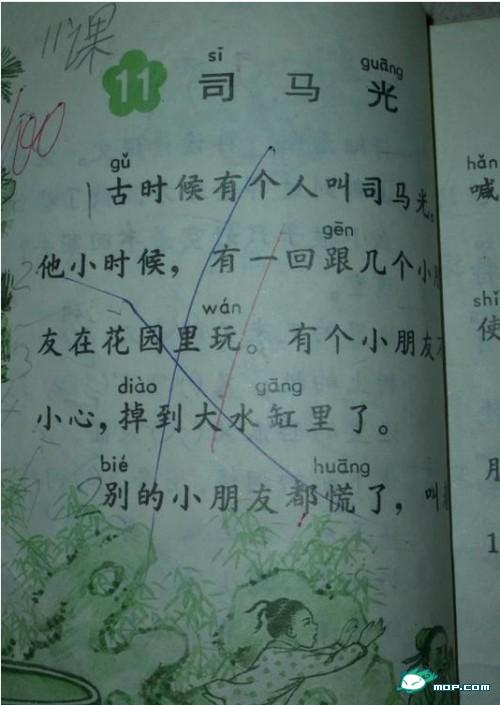 11课
11 司马光
sī guāng
gǔ
古时候有个人叫司马光。
gēn
他小时候，有一回跟几个小
wán
友在花园里玩。有个小朋友
diào gāng
小心，掉到大水缸里了。
bié huāng
别的小朋友都慌了，叫
100
hǎn
喊
shǐ
使
月
1
mop.com